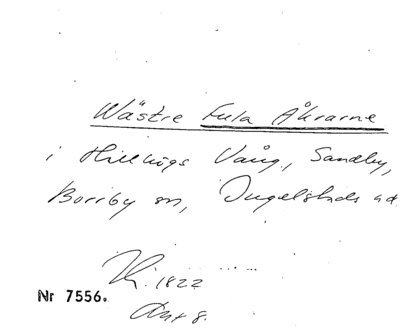 Wästre Fula Åkrarne
i Hillhögs Vång, Sandby,
Borrby sn, Ingelstads hd.
1822
Nr 7556.
Akt 8.